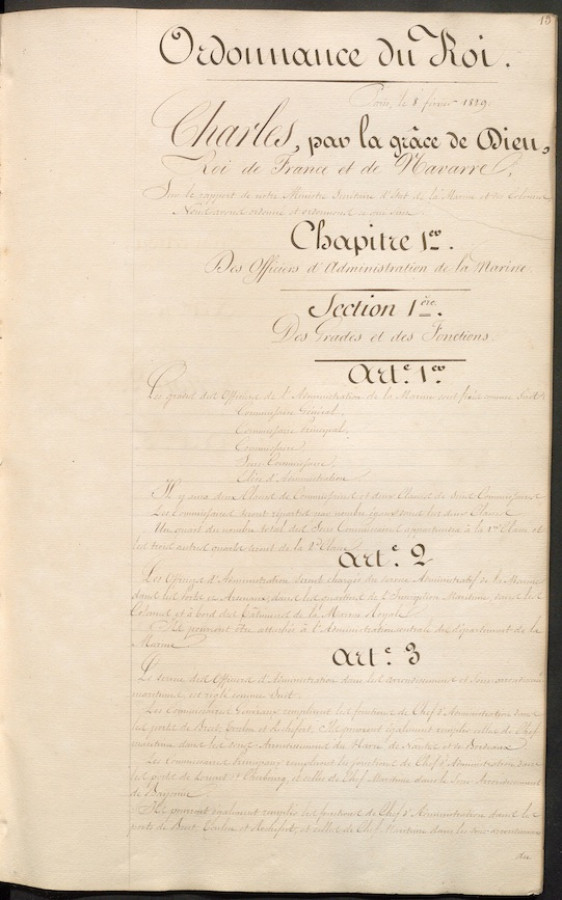 13
Ordonnance du Roi.
Paris, le 8 février 1829.
Charles, par la grâce de Dieu,
Roi de France et de Navarre,
Sur le rapport de notre Ministre Secrétaire d'État de la Marine et des Colonies
Nous avons ordonné et ordonnons ce qui suit
Chapitre 1er.
Des Officiers d'Administration de la Marine
Section 1ère.
Des Grades et des Fonctions.
Art.e 1er
Les grades des Officiers de l'Administration de la Marine sont fixés comme suit
Commissaire Général,
Commissaire Principal,
Commissaire,
Sous Commissaire,
Élève d'Administration
Il y aura deux Classes de Commissaires et deux Classes de Sous Commissaires
Les Commissaires seront répartis en nombre égal dans les deux Classes
Un quart du nombre total des Sous Commissaires appartiendra à la 1ère Classe et
les trois autres quarts seront de la 2e Classe
Art.e 2
Les Officiers d'Administration seront chargés du service Administratif de la Marine
dans les ports et Arsenaux, dans les quartiers de l'Inscription Maritime, dans les
Colonies et à bord des Bâtiments de la Marine Royale
Ils pourront être attachés à l'Administration centrale du département de la
Marine
Art.e 3
Le service des Officiers d'Administration dans les arrondissements et Sous arrondissements
maritimes, est réglé comme Suit:
Les Commissaires Généraux rempliront les fonctions de Chef d'Administration dans
les ports de Brest, Toulon et Rochefort. Ils pourront également remplir celles de Chef
maritime dans les Sous Arrondissements du Havre de Nantes et de Bordeaux
Les Commissaires Principaux rempliront les fonctions de Chef d'Administration dans
les ports de Lorient et Cherbourg, et celles de Chef Maritime dans le Sous Arrondissement
de Bayonne
Ils pourront également remplir les fonctions de Chef d'Administration dans les
ports de Brest, Toulon et Rochefort, et celles de Chef Maritime dans les Sous arrondissements